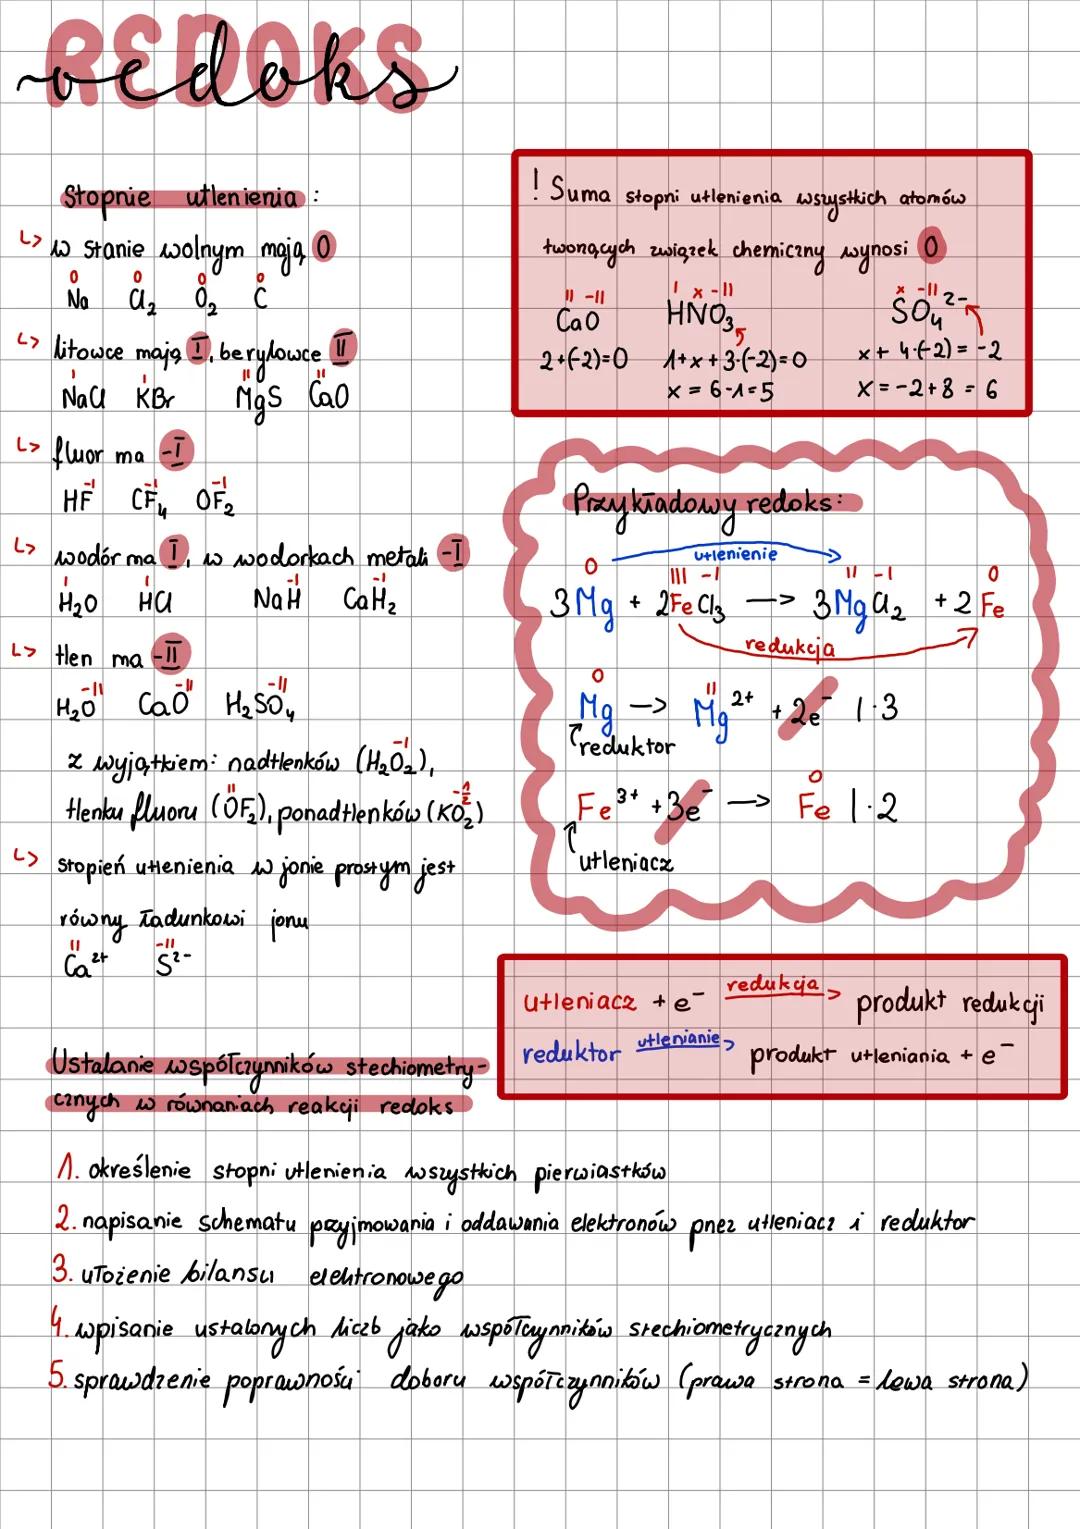 REDOKS
redoks
Stopnie utlenienia :
↳ w stanie wolnym mają 0
0 0 0 0
Na Cl₂ O₂ C
↳ litowce mają I, berylowce II
I I II II
NaCl KBr MgS CaO
↳ fluor ma -I
-I -I -I
HF CF₄ OF₂
↳ wodór ma I, w wodorkach metali -I
I I -I -I
H₂O HCl NaH CaH₂
↳ tlen ma -II
-II -II -II
H₂O CaO H₂SO₄
-I
z wyjątkiem: nadtlenków (H₂O₂),
II -½
tlenku fluoru (OF₂), ponadtlenków (KO₂)
↳ stopień utlenienia w jonie prostym jest
równy ładunkowi jonu
II -II
Ca²⁺ S²⁻
! Suma stopni utlenienia wszystkich atomów
tworzących związek chemiczny wynosi 0
II -II I x -II x -II
CaO HNO₃ SO₄²⁻
2+(-2)=0 1+x+3·(-2)=0 x+4·(-2)=-2
x = 6-1=5 x=-2+8 = 6
Przykładowy redoks:
utlenienie
0 III -I II -I 0
3Mg + 2FeCl₃ → 3MgCl₂ + 2Fe
redukcja
0 II
Mg → Mg²⁺ + 2e⁻ |·3
reduktor
0
Fe³⁺ + 3e⁻ → Fe |·2
utleniacz
utleniacz + e⁻ redukcja → produkt redukcji
reduktor utlenianie → produkt utleniania + e⁻
Ustalanie współczynników stechiometry-
cznych w równaniach reakcji redoks
1. określenie stopni utlenienia wszystkich pierwiastków
2. napisanie schematu przyjmowania i oddawania elektronów przez utleniacz i reduktor
3. ułożenie bilansu elektronowego
4. wpisanie ustalonych liczb jako współczynników stechiometrycznych
5. sprawdzenie poprawności doboru współczynników (prawa strona = lewa strona)